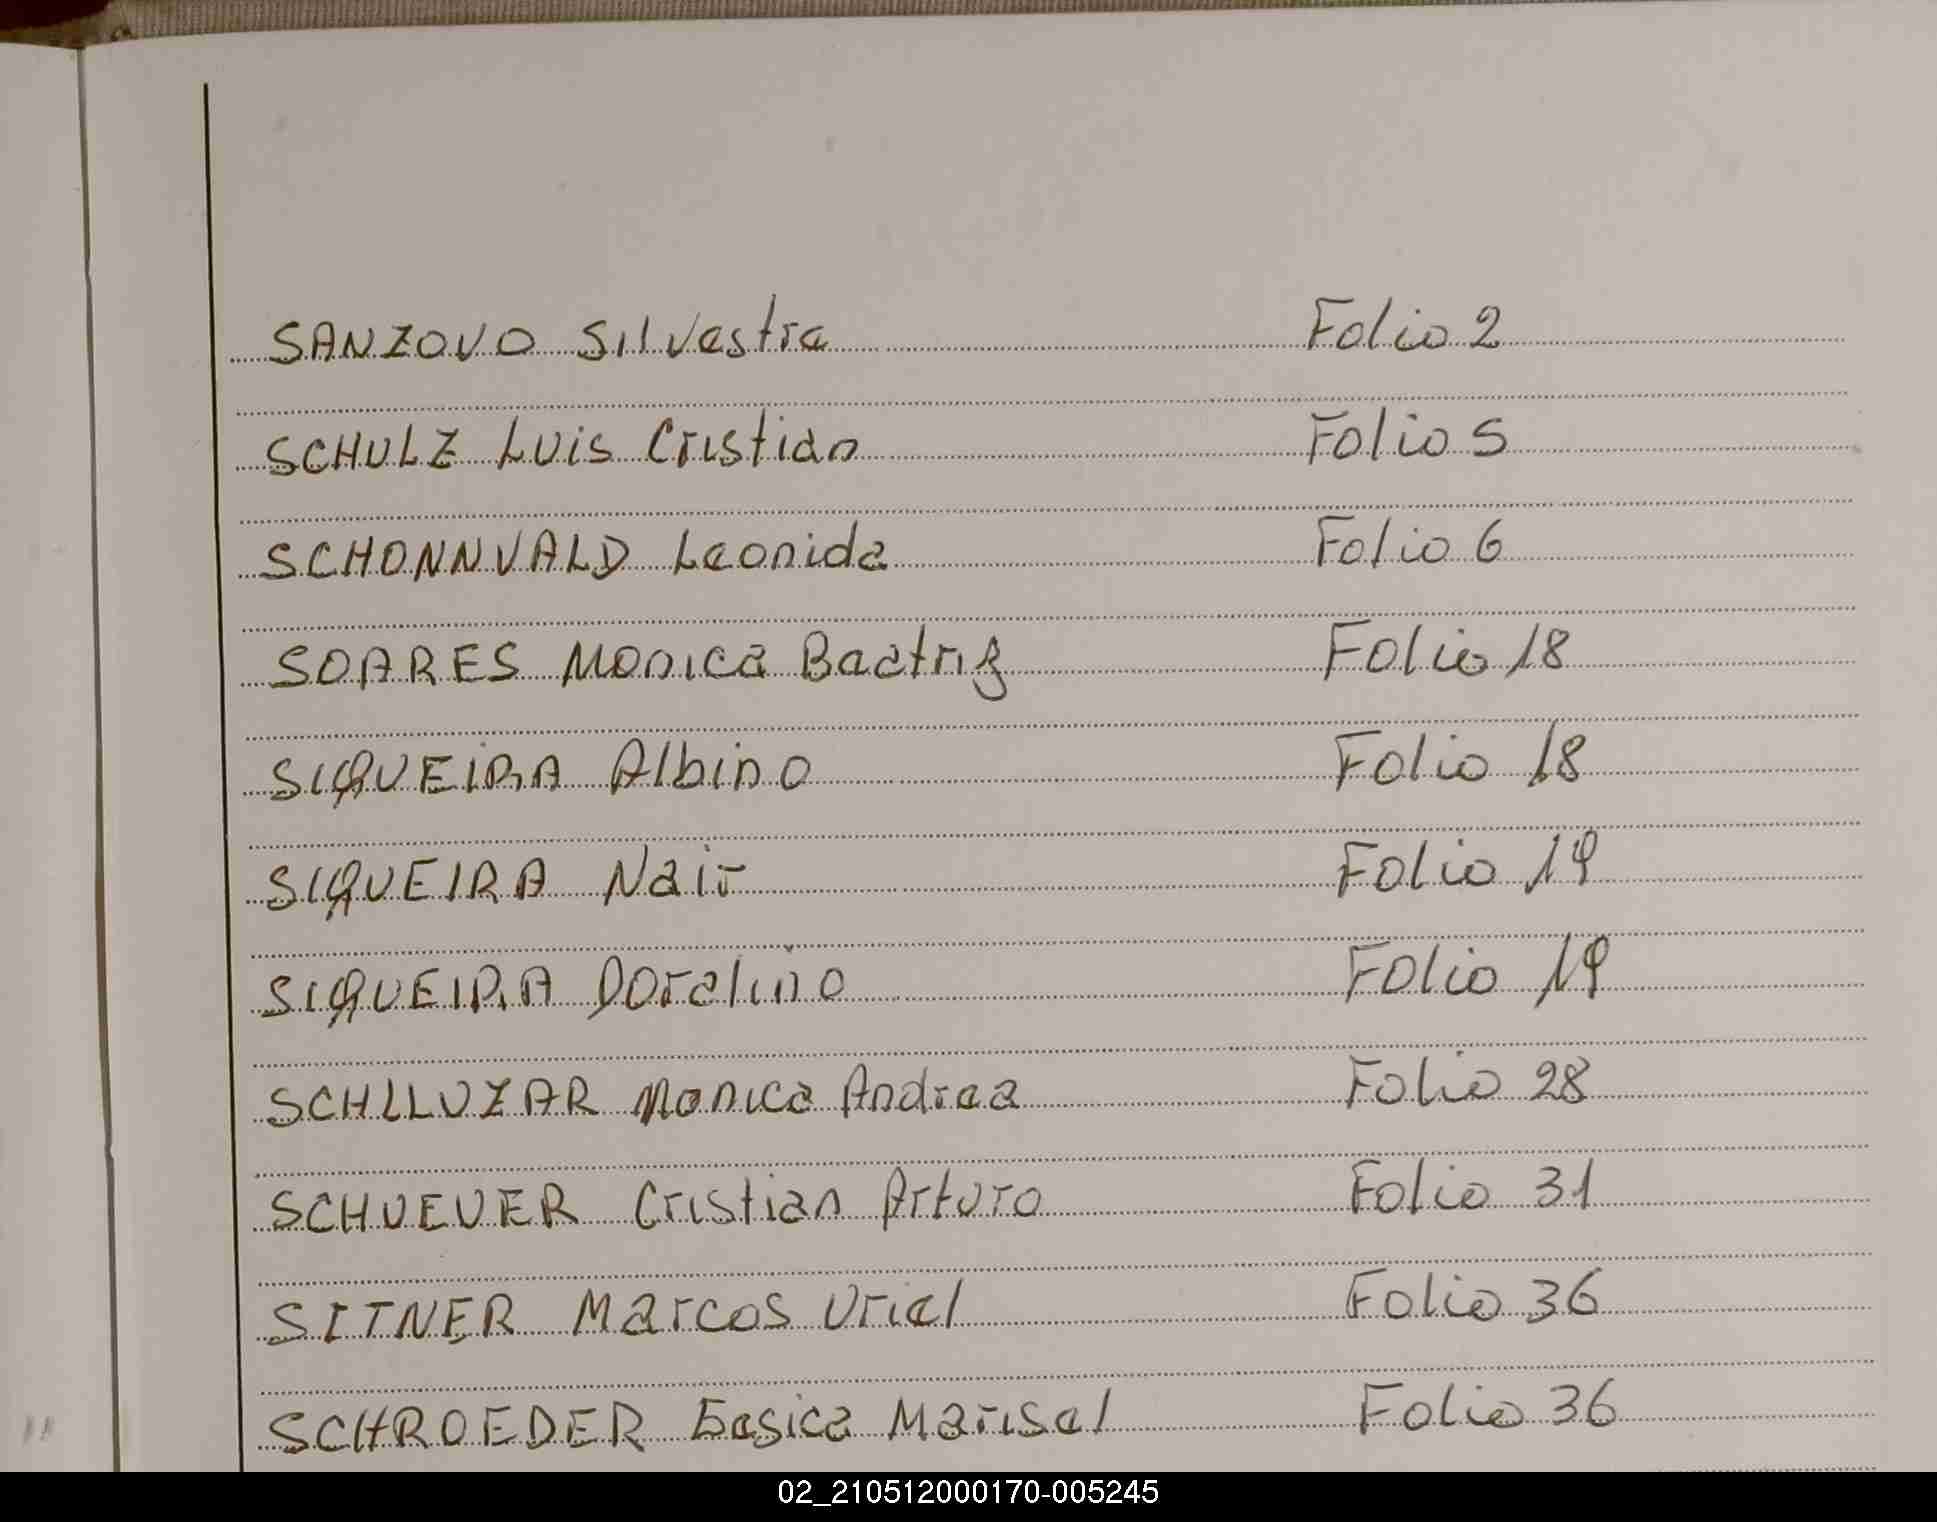 SANZOVO Silvestre Folio 2
SCHULZ Luis Cristian Folio 5
SCHONNVALD Leonida Folio 6
SOARES Monica Beatriz Folio 18
SIQUEIRA Albino Folio 18
SIQUEIRA Nair Folio 19
SIQUEIRA Doralino Folio 19
SCHLLUZAR Monica Andrea Folio 28
SCHUEUER Cristian Arturo Folio 31
SITNER Marcos Uriel Folio 36
SCHROEDER Marisel Folio 36
02_210512000170-005245